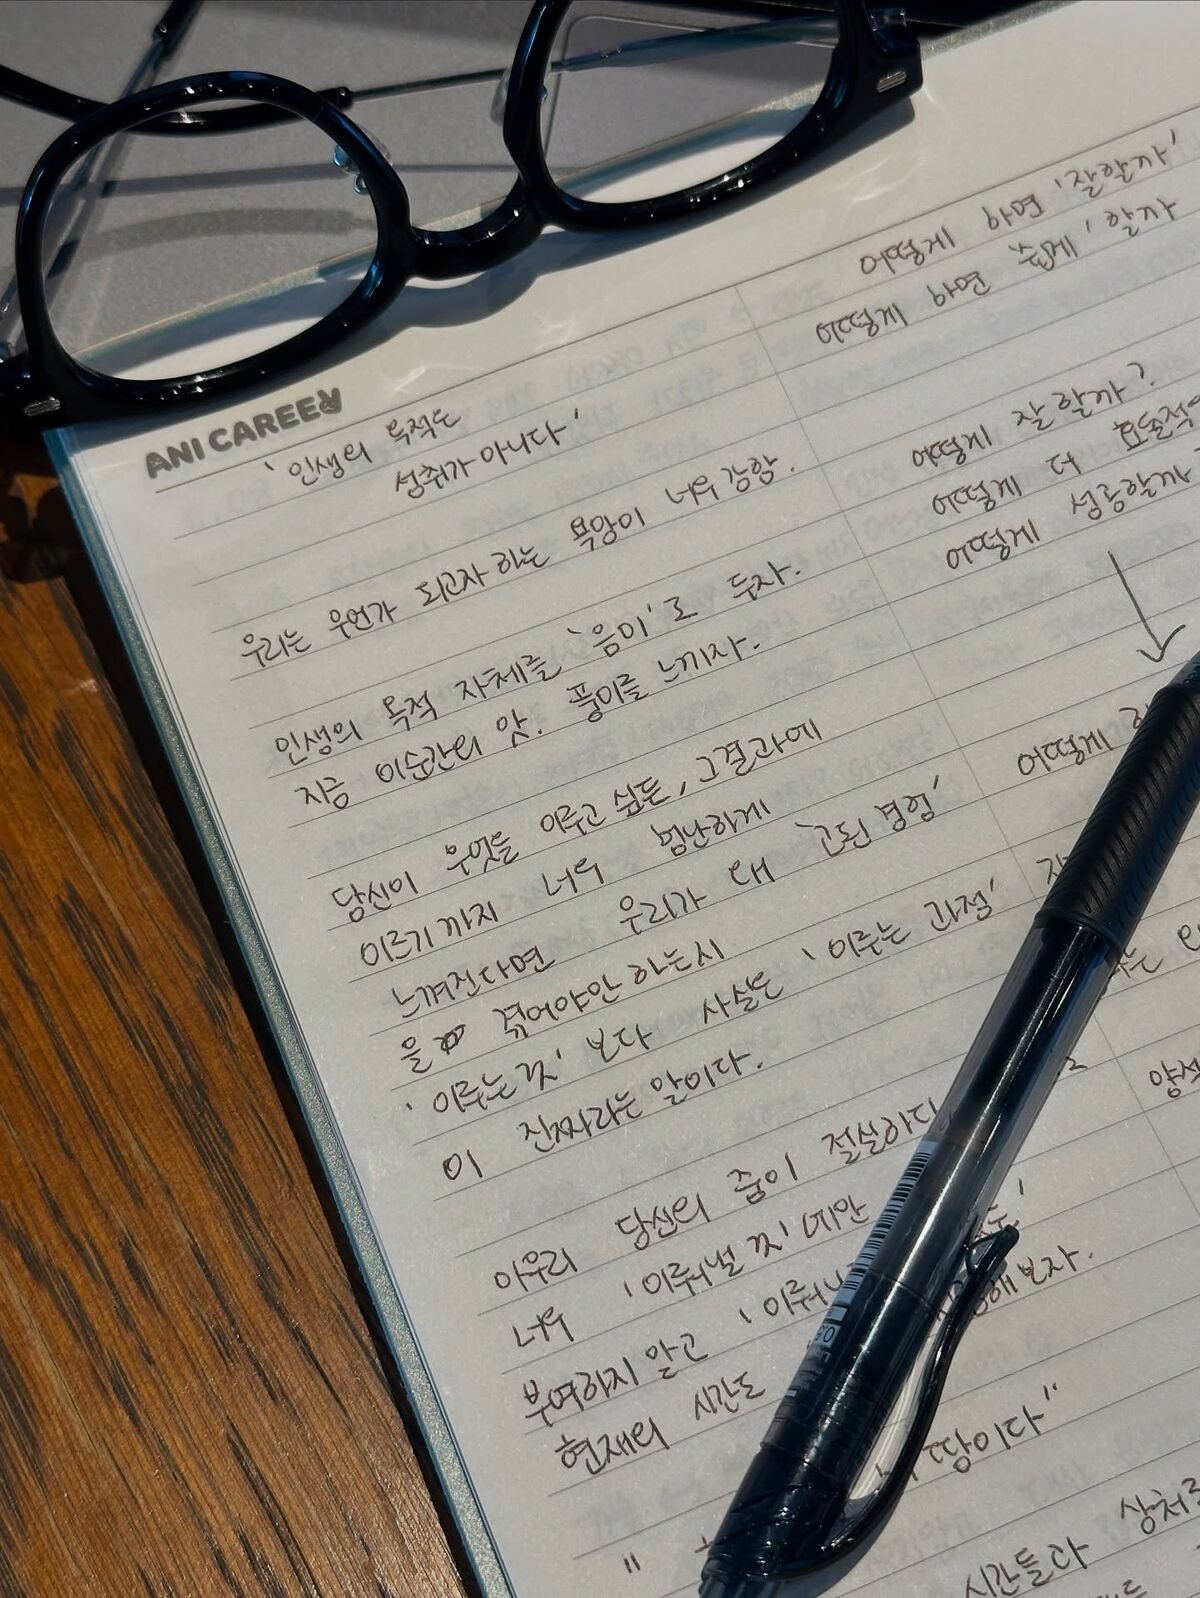 ANI CAREER
'인생의 목적은
성취가 아니다'
우리는 무언가 되고자 하는 욕망이 너무 강함.
인생의 목적 자체를 '음미'로 두자.
지금 이순간의 맛. 풍미를 느끼자.
당신이 무엇을 이루고 싶든, 그 결과에
이르기까지 너무 험난하게
느껴진다면 우리가 왜 '고된 경험'
을 겪어야만 하는지
'이루는 것' 보다 사실은 '이루는 과정'
이 진짜라는 말이다.
아무리 당신의 꿈이 절실하다
너무 '이뤄낼 것'에만
부여하지 말고 '이뤄
현재의 시간도 해보자.
어떻게 하면 '잘할까'
어떻게 하면 쉽게' 할까
어떻게 잘 할까?
어떻게 더 효율적
어떻게 성공할까
어떻게
양적
시간들과 상처